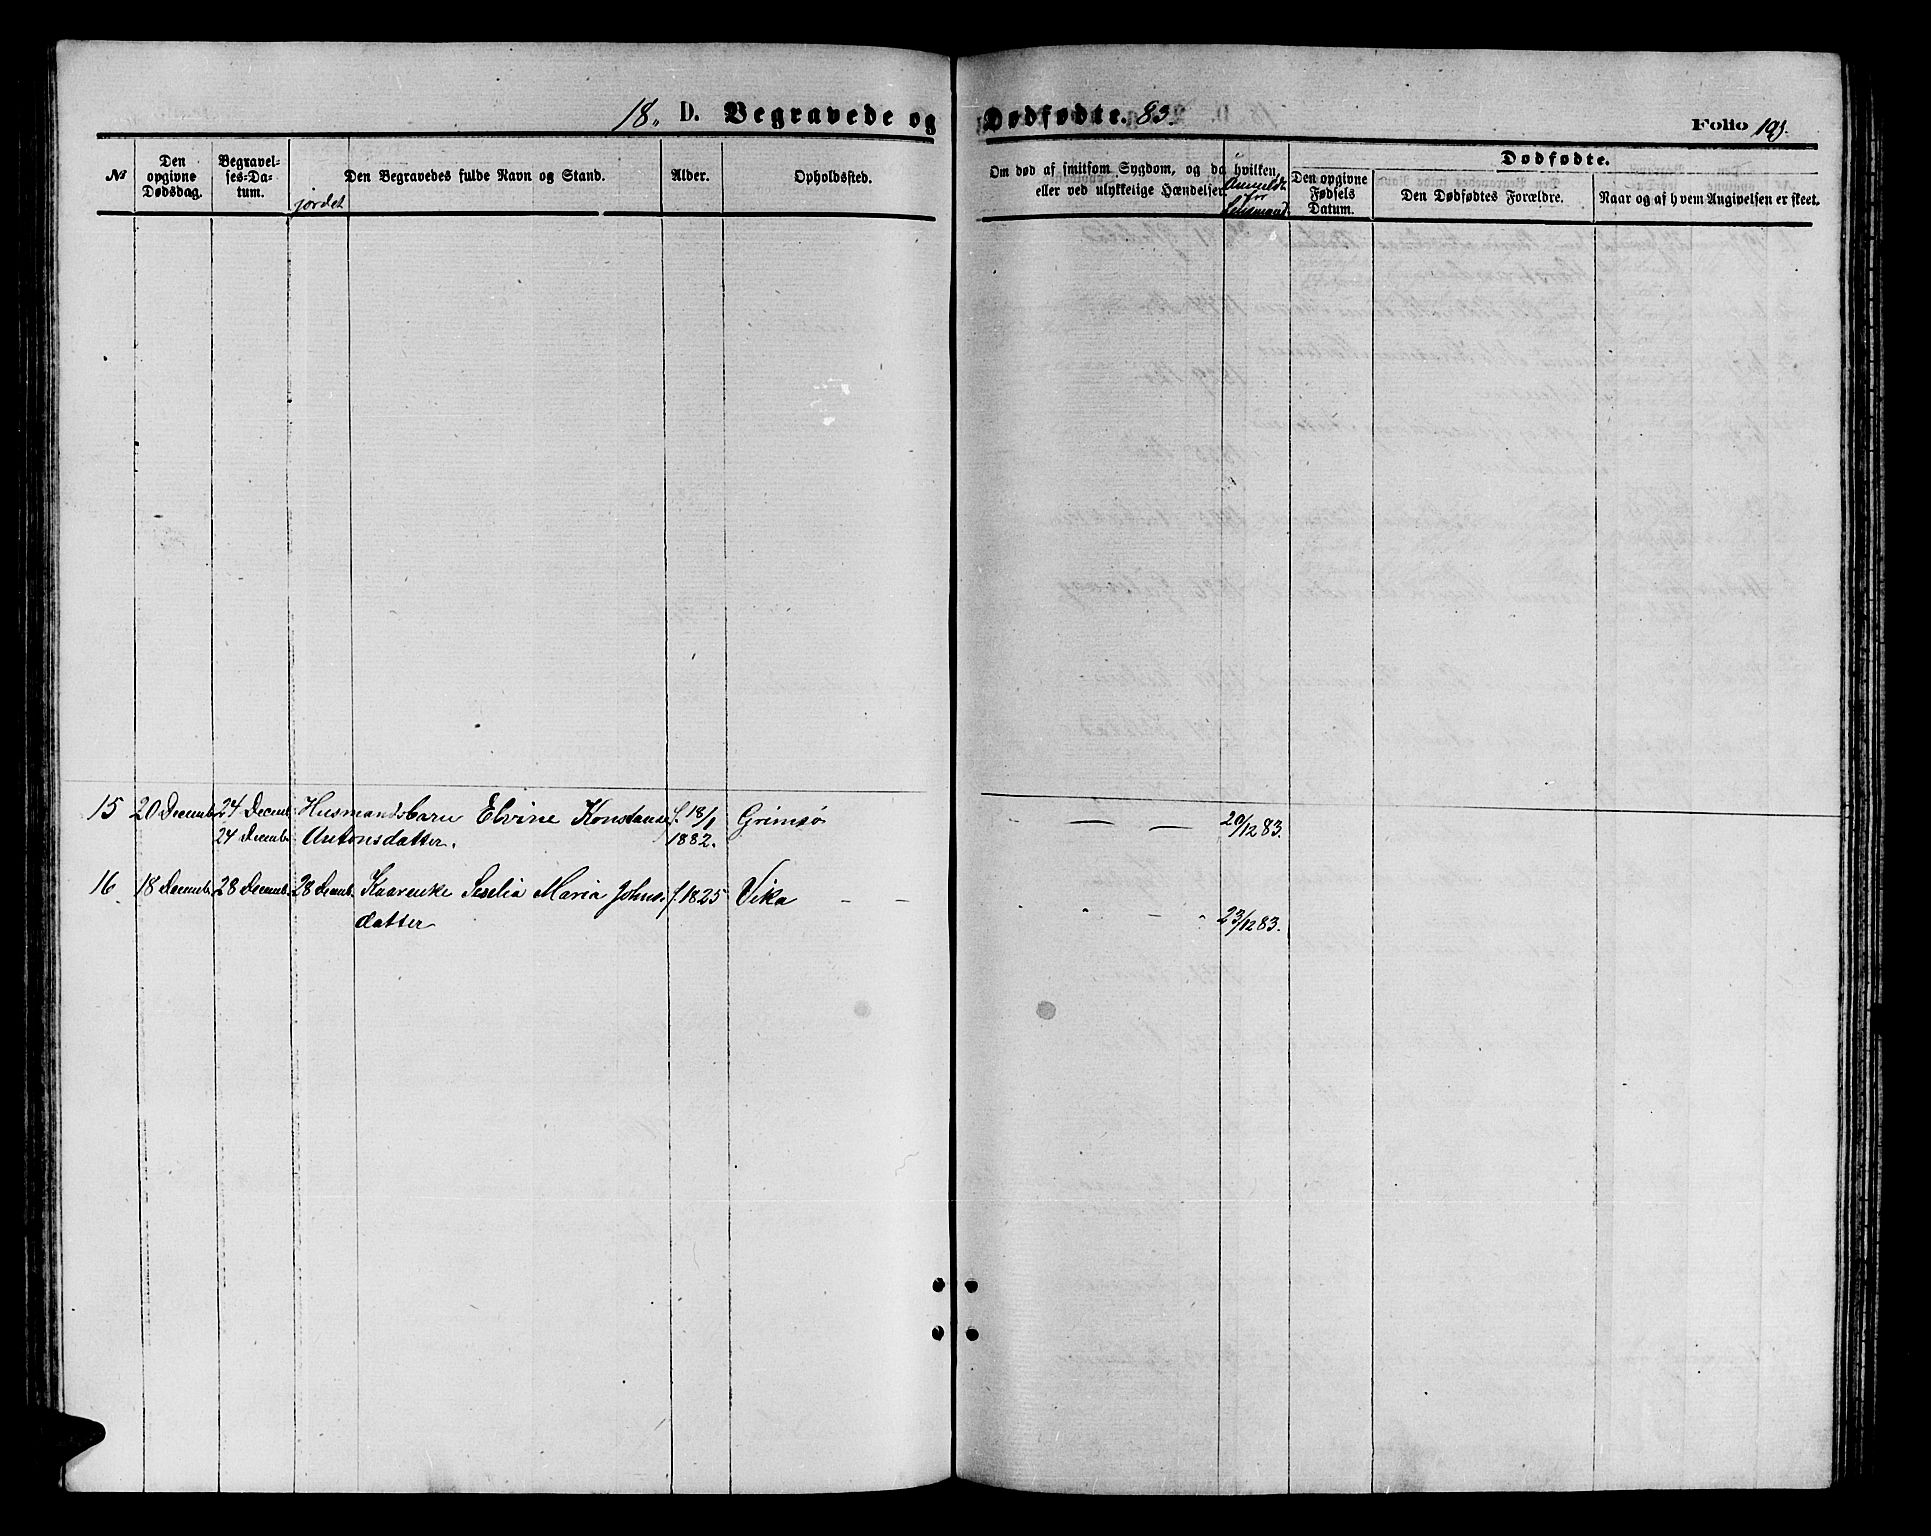 18 D. Begravede og Dødfødte. 83.
Folio 193.
No
Den opgivne Dødsdag.
Begravel-
ses-Da-
tum.
jordet
Den Begravedes fulde Navn og Stand.
Alder.
Opholdssted.
Om død af smitsom Sygdom, og da hvilken,
eller ved ulykkelige Hændelser.
Anmeldt
for
Lensmand.
Dødfødte.
Den opgivne
Fødsels
Datum.
Den Dødfødtes Forældre.
Naar og af hvem Angivelsen er skeet.
15 20 Decemb. 24 Decemb. Husmandsbarn Elvine Konstanse f. 18/1 Grimsø — — — 20/12 83.
24 Decemb. Antonsdatter. 1882.
16 18 Decemb. 28 Decemb. 28 Decemb. Kaarenke Seselia Maria Johns- f. 1825 Vika — —
datter 23/12 83.